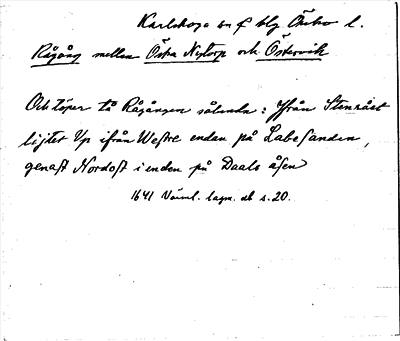 Karlskoga sn f bg Örebro l.
Rågång mellan Östra Nytorp och Östervik
Och löper tå Rågången sålunda: Ifrån Stenröset
lijtet Vp ifrån Westre enden på Labesanden,
genast Nordost i enden på Daals åsen
1641 Värml. lagm. db s. 20.